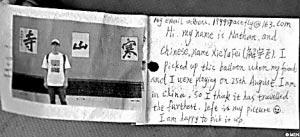 寺 山 寒
my email address. 1999spacefly@163.com
Hi. my name is Nathan. and
Chinese name XieYaFei (解亚菲). I
picked up this balloon when my friend
and I were playing on 25th August. I am
in China. So I think it has travelled
the furthest. left is my picture
I am happy to pick it up